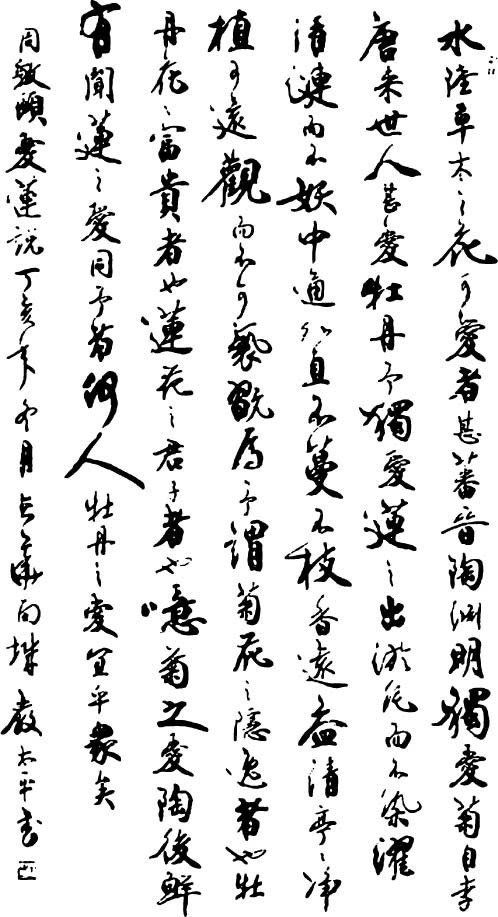 水陸草木之花可愛者甚蕃晉陶淵明獨愛菊自李
唐来世人甚愛牡丹予獨愛蓮之出淤泥而不染濯
清漣而不妖中通外直不蔓不枝香遠益清亭亭净
植可遠觀而不可褻翫焉予謂菊花之隱逸者也牡
丹花之富貴者也蓮花之君子者也噫菊之愛陶後鮮
有聞蓮之愛同予者何人牡丹之愛宜乎衆矣
周敦頤愛蓮說丁亥年冬月太平书